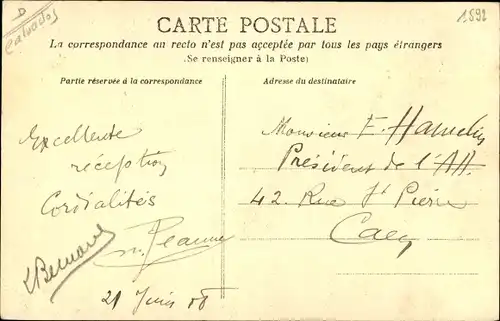 D
Calvados
1892
CARTE POSTALE
La correspondance au recto n'est pas acceptée par tous les pays étrangers
(Se renseigner à la Poste)
Partie réservée à la correspondance
Adresse du destinataire
Excellente
réception
Cordialités
L Bernard
21 Juin 08
Monsieur F. Hamelin
Président de l'AH.
42. Rue St Pierre
Caen